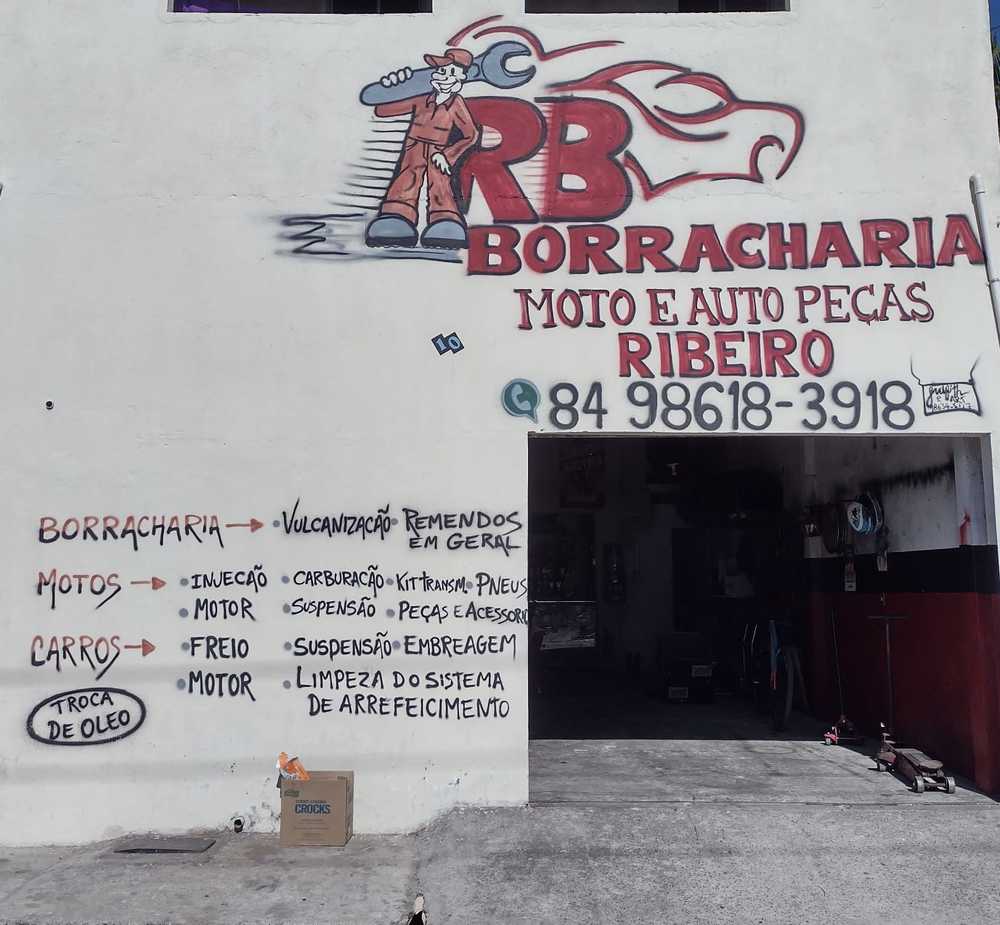 RB
BORRACHARIA
MOTO E AUTO PEÇAS
RIBEIRO
84 98618-3918
10
BORRACHARIA → • VULCANIZAÇÃO • REMENDOS EM GERAL
MOTOS → • INJEÇÃO • CARBURAÇÃO • KIT TRANSM. • PNEUS
• MOTOR • SUSPENSÃO • PEÇAS E ACESSORIO
CARROS → • FREIO • SUSPENSÃO • EMBREAGEM
• MOTOR • LIMPEZA DO SISTEMA
DE ARREFEICIMENTO
TROCA
DE OLEO
CROCKS